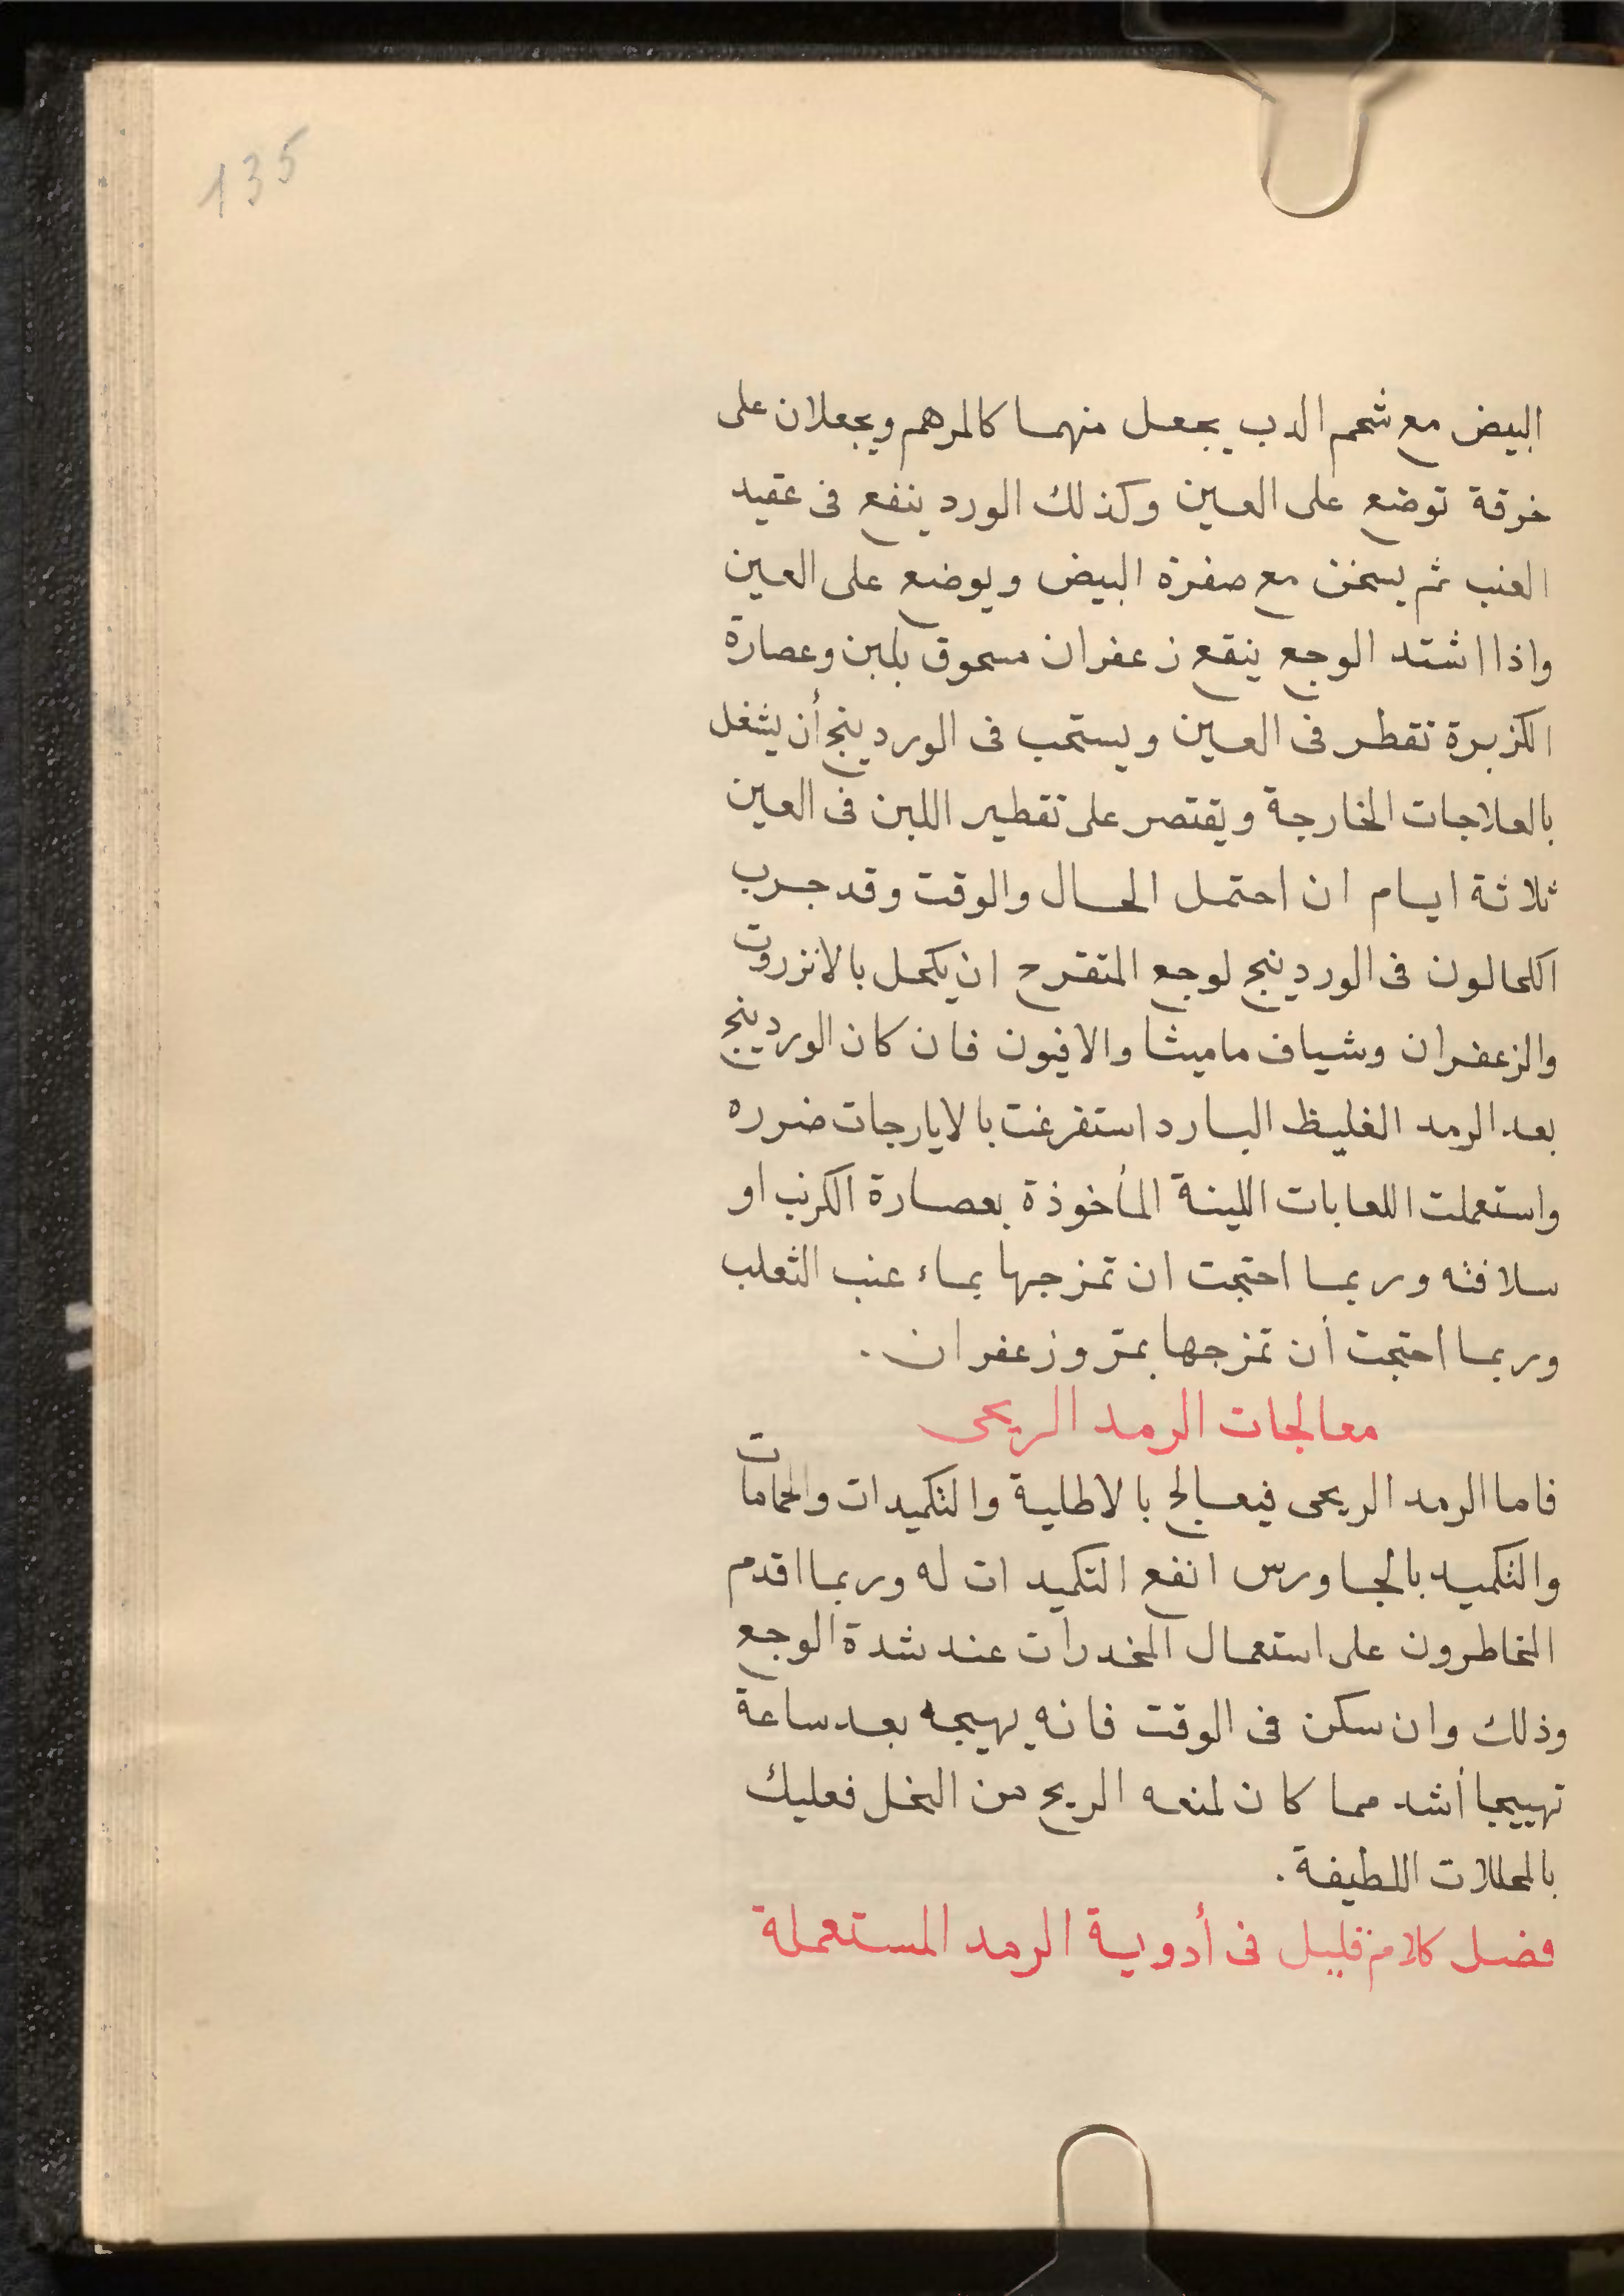 135
البيض مع شحم الدب يجعل منهما كالمرهم ويجعلان على
خرقة توضع على العين وكذلك الورد ينفع فى عقيد
العنب ثم يسخن مع صفرة البيض ويوضع على العين
واذا اشتد الوجع ينقع زعفران مسحوق بلبن وعصارة
الكزبرة تقطر فى العين ويستحب فى الوردينج أن يشغل
بالعلاجات الخارجة ويقتصر على تقطير اللبن فى العين
ثلاثة ايام ان احتمل الحال والوقت وقد جرب
الكحالون فى الوردينج لوجع المتقرح ان يكحل بالانزروت
والزعفران وشياف ماميثا والافيون فان كان الوردينج
بعد الرمد الغليظ البارد استفرغت بالايارجات ضرره
واستعملت اللعابات اللينة المأخوذة بعصارة الكرنب او
سلافته وربما احتجت ان تمزجها بماء عنب الثعلب
وربما احتجت أن تمزجها بمرّ وزعفران .
معالجات الرمد الريحى
فاما الرمد الريحى فيعالج بالاطلية والتكميدات والحمامات
والتكميد بالجاورس انفع التكميدات له وربما اقدم
المخاطرون على استعمال المخدرات عند شدة الوجع
وذلك وان سكن فى الوقت فانه يهيجه بعد ساعة
تهييجا أشد مما كان لمنعه الريح من النحل فعليك
بالمحللات اللطيفة .
فصل كلام قليل فى أدوية الرمد المستعملة